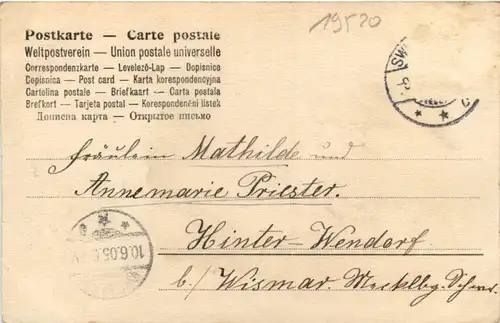 19520
Postkarte — Carte postale
Weltpostverein — Union postale universelle
Correspondenzkarte — Levelező-Lap — Dopisnice
Dopisnica — Post card — Karta korespondencyjna
Cartolina postale — Briefkaart — Carta postala
Brefkort — Tarjeta postal — Korespondenční listek
Дописна карта — Открытое письмо
SW
Fräulein Mathilde und
Annemarie Priester.
Hinter-Wendorf
b./ Wismar. Mecklbg. Schwer.
10.6.05.